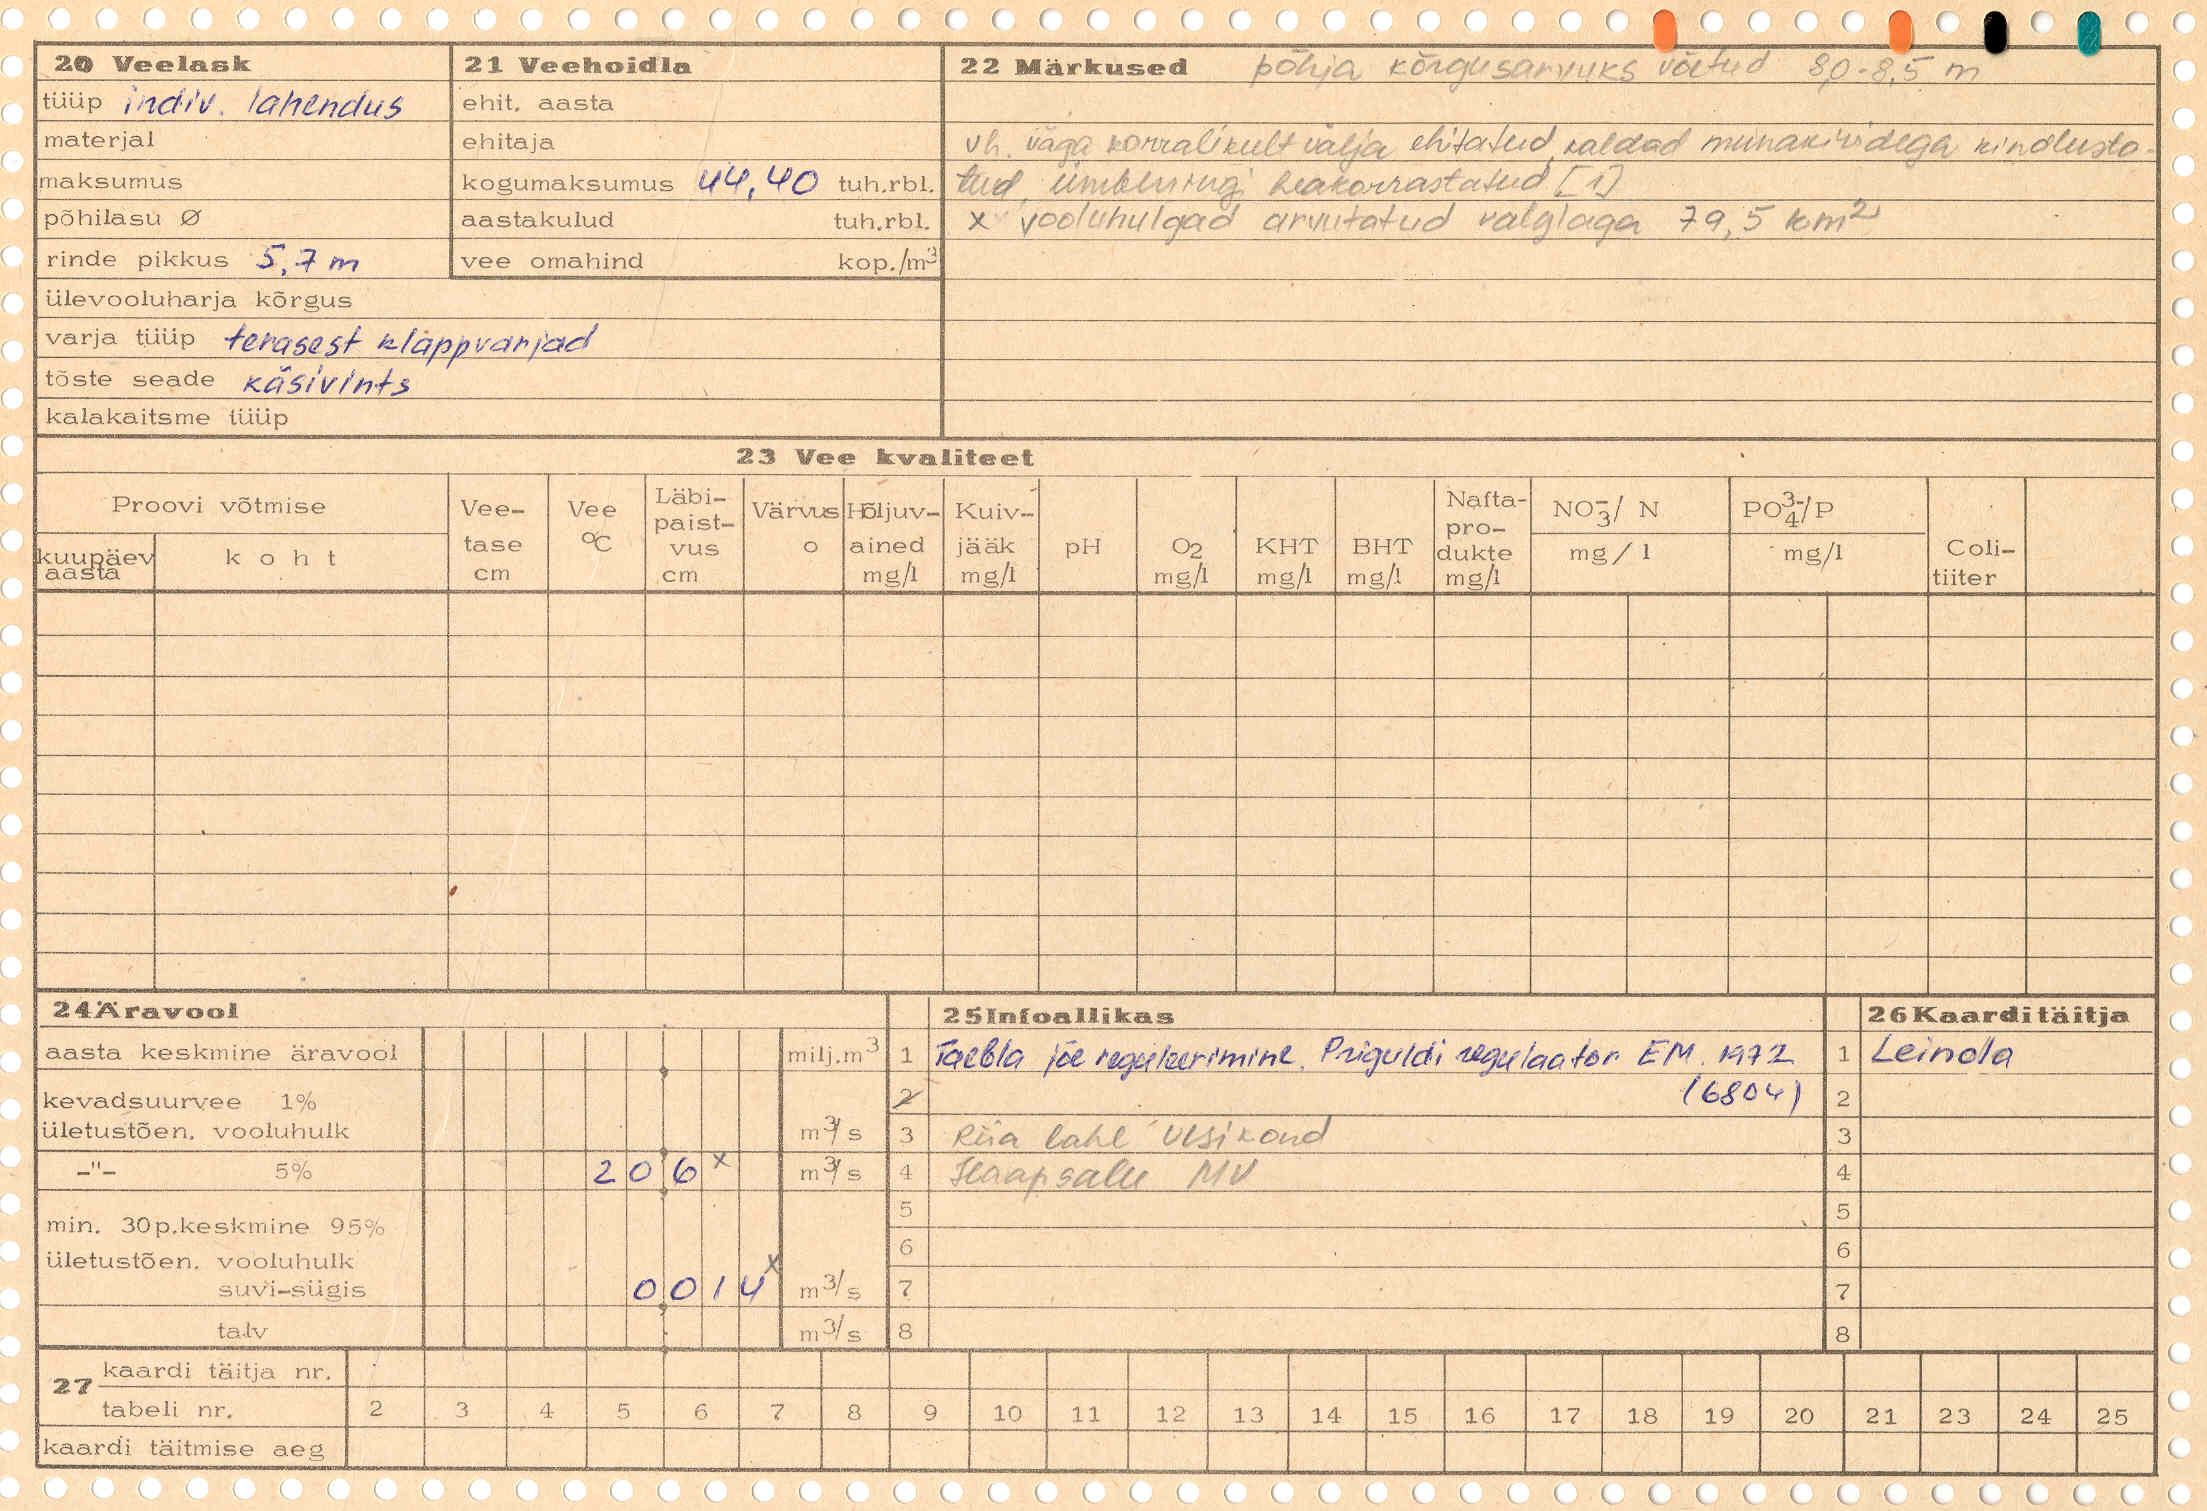 20 Veelask
tüüp indiv. lahendus
materjal
maksumus
põhilasu Ø
rinde pikkus 5,7 m
ülevooluharja kõrgus
varja tüüp terasest klappvarjad
tõste seade käsivints
kalakaitsme tüüp
21 Veehoidla
ehit. aasta
ehitaja
kogumaksumus 44,40 tuh.rbl.
aastakulud tuh.rbl.
vee omahind kop./m3
22 Märkused põhja kõrgusarvuks võetud 8,0-8,5 m
vh. väga korralikult välja ehitatud, kaldad munakividega kindlusta-
tud, ümbleringi heakorrastatud [1]
x vooluhulgad arvutatud valglaga 79,5 km2
23 Vee kvaliteet
Proovi võtmise
kuupäev aasta
koht
Vee-tase cm
Vee °C
Läbi-paist-vus cm
Värvus o
Hõljuv-ained mg/l
Kuiv-jääk mg/l
pH
O2 mg/l
KHT mg/l
BHT mg/l
Nafta-pro-dukte mg/l
NO3-/ N mg/l
PO43-/P mg/l
Coli-tiiter
24 Äravool
aasta keskmine äravool milj.m3
kevadsuurvee 1%
ületustõen. vooluhulk m3/s
-"- 5% 2 0 6 x m3/s
min. 30p.keskmine 95%
ületustõen. vooluhulk
suvi-sügis 0 0 1 4 x m3/s
talv m3/s
25 Infoallikas
1 Taebla jõe reguleerimine. Priguldi regulaator EM. 1972
2 (6804)
3 Riia lahe vesikond
4 Haapsalu MV
5
6
7
8
26 Kaardi täitja
1 Leinola
2
3
4
5
6
7
8
27 kaardi täitja nr.
tabeli nr. 2 3 4 5 6 7 8 9 10 11 12 13 14 15 16 17 18 19 20 21 23 24 25
kaardi täitmise aeg